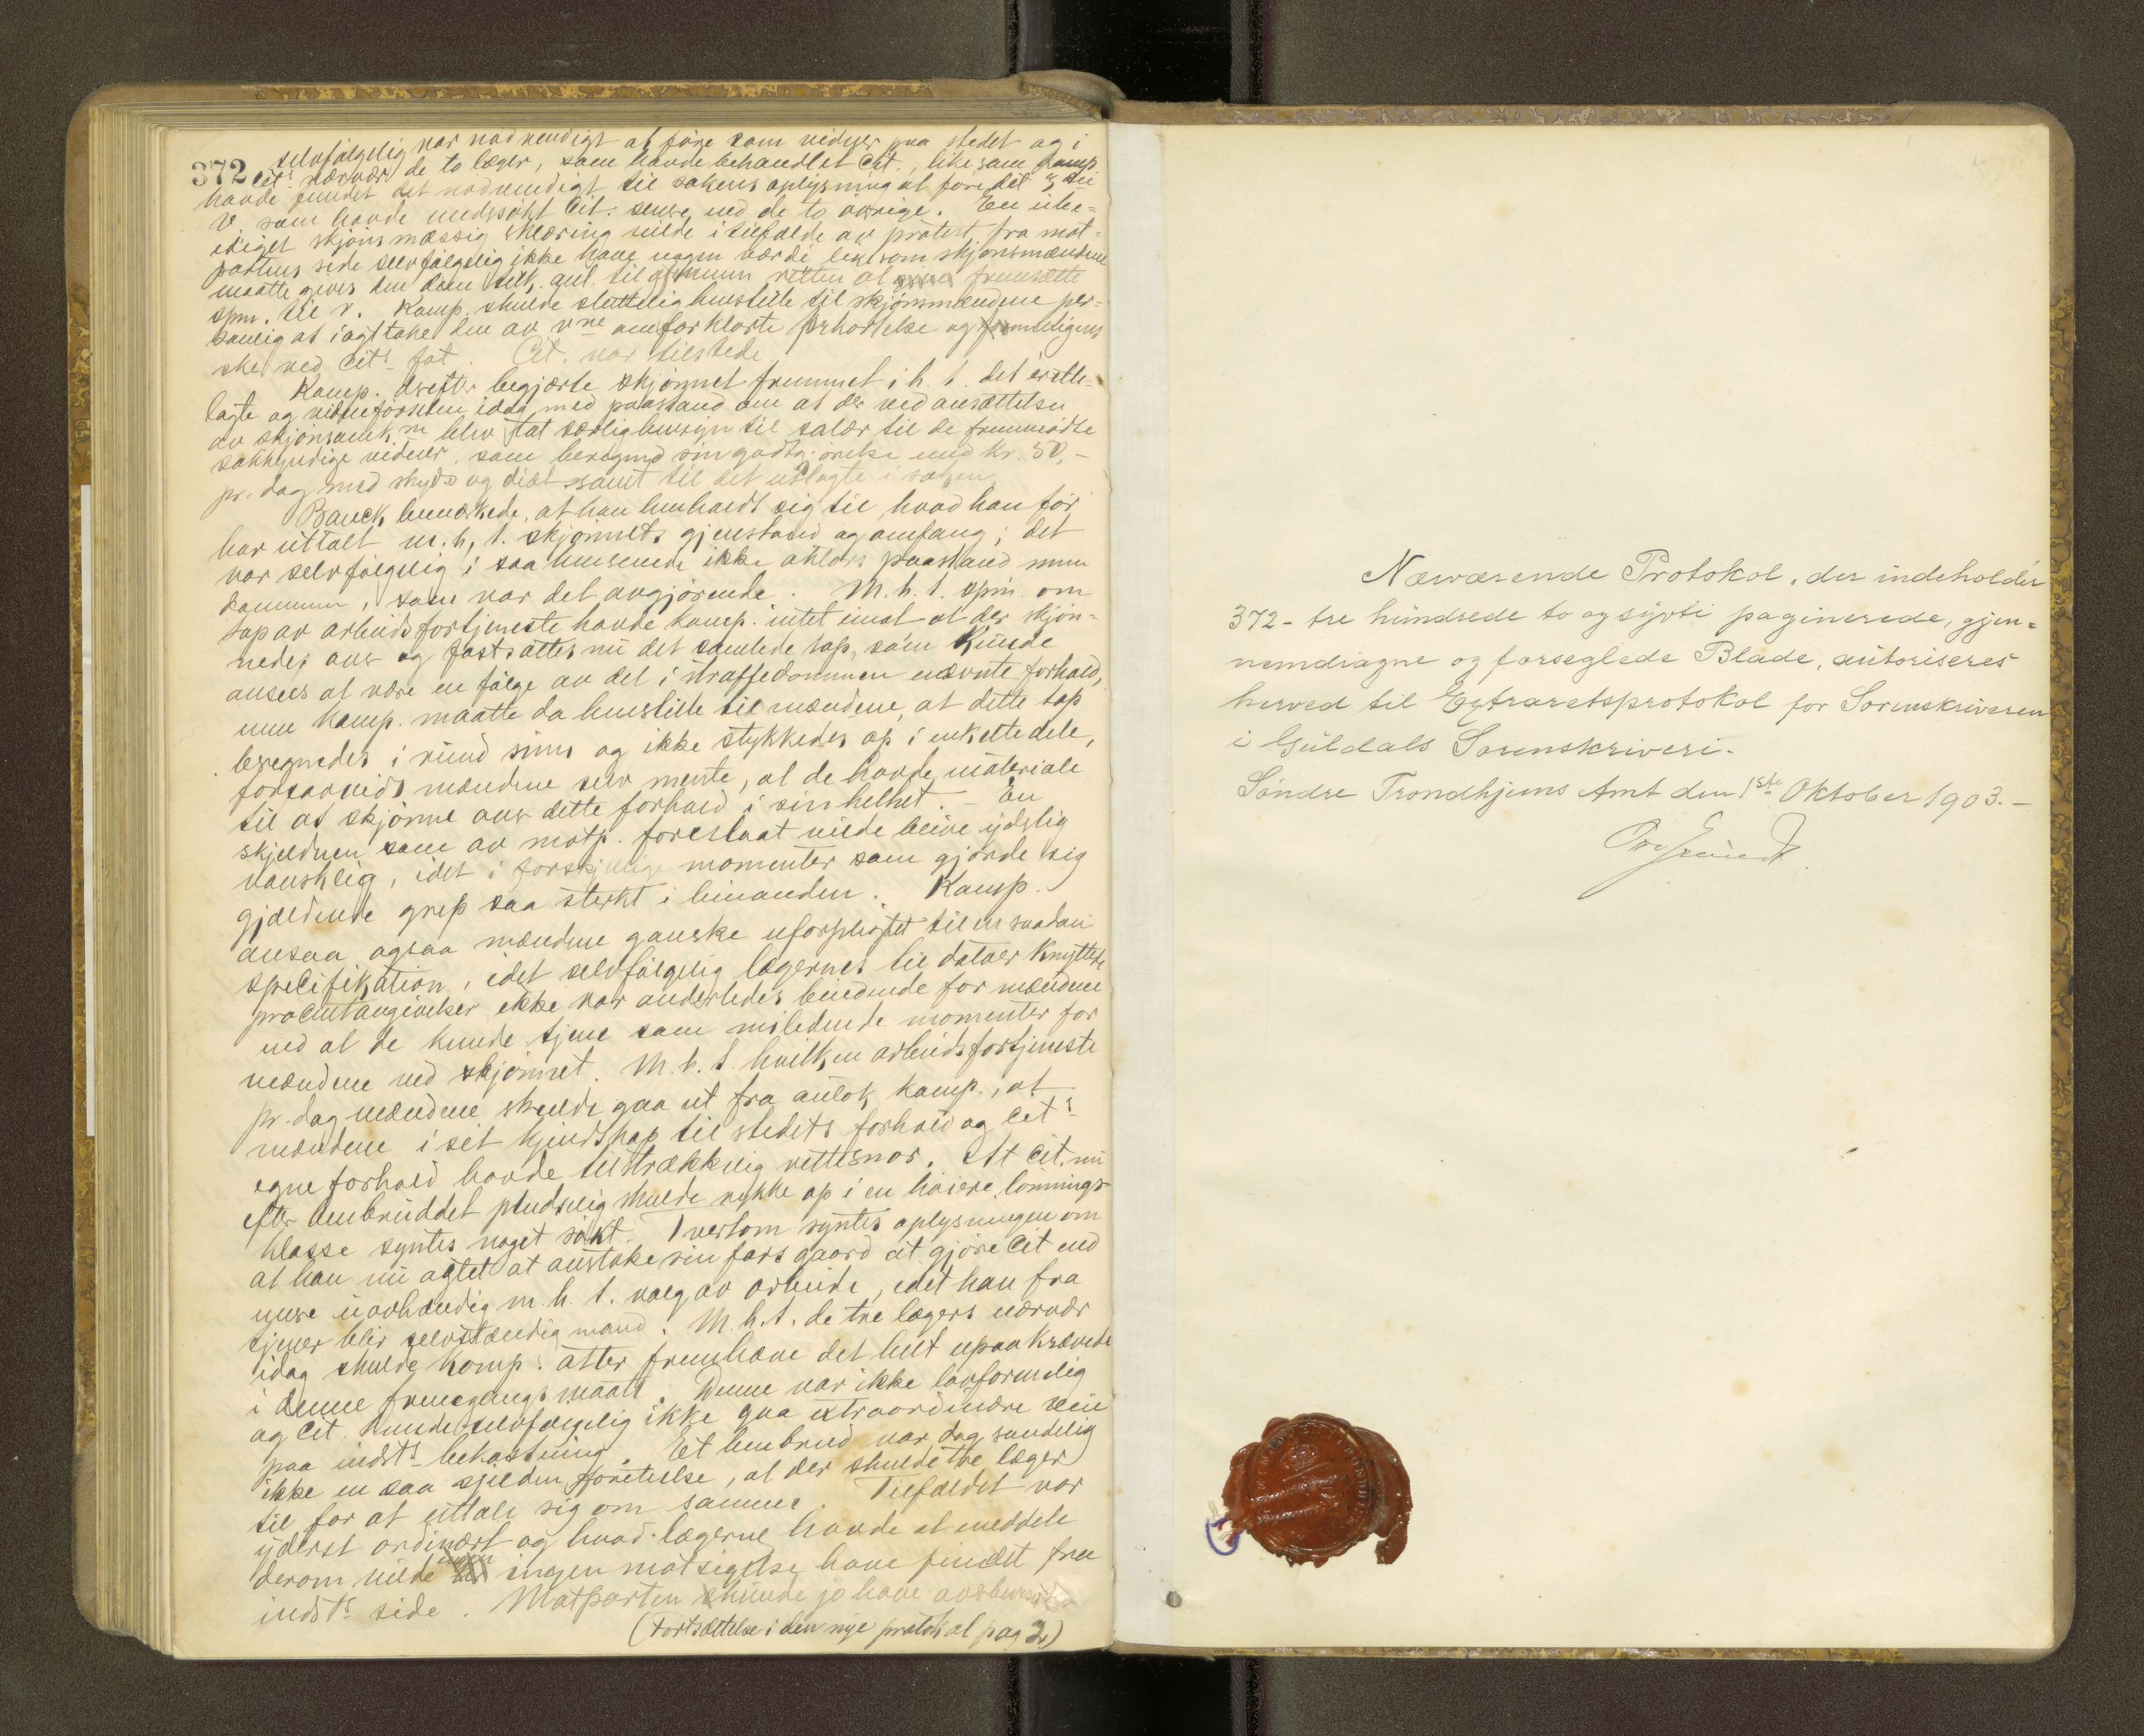 372
selvfølgelig var nødvendigt at føre som vidner paa stedet og i
Cits nærvær de to læger, som havde behandlet Cit., like som komp.
havde fundet det nødvendigt til sakens oplysning at føre det 3die
V. som havde undersøkt Cit. senere end de to øvrige. En ube-
ediget skjønsmæssig erklæring vilde i tilfælde av protest fra mot-
partens side selvfølgelig ikke have nogen værdi likesom skjønsmændene
maatte gives den dem anl. til retten at fremsætte
spm. til v. Komp. skulde sluttelig henstille til skjønsmændene per-
sonlig at iagttake den av vne omforklarte forkortelse og
ske ved Cits fot. Cit. var tilstede.
Komp. derefter begjærte skjønnet fremmet i h. t. det i rette-
lagte og vidneførselen idag med paastand om at der ved ansættelsen
av skjønsomk.ne blev tat særlig hensyn til salær til de fremmødte
sakkyndige vidner, som beregned sin godtgjørelse med Kr. 50,-
pr. dag med skyds og diæt samt til det utlagte i saken.
Bauck bemærkede, at han henholdt sig til hvad han før
har uttalt m. h. t. skjønnets gjenstand og omfang; det
var selvfølgelig i saa henseende ikke aktors paastand men
dommen, som var det avgjørende. M. h. t. spm. om
tap av arbeidsfortjeneste havde komp. intet imot at der skjøn-
nedes over og fastsattes nu det samlede tap, som kunde
ansees at være en følge av det i straffedommen nævnte forhold,
men komp. maatte da henstille til mændene, at dette tap
beregnedes i rund sum og ikke stykkedes op i enkelte dele,
forsaavidt mændene selv mente, at de havde materiale
til at skjønne over dette forhold i sin helhet. - En
skjelnen som av motp. foreslaat vilde blive yderlig
vanskelig, idet i forskjellige momenter som gjorde sig
gjældende grep saa sterkt i hinanden. Komp.
ansaa ogsaa mændene ganske uforpligtet til en saadan
specifikation, idet selvfølgelig lægernes til datoer knyttede
procentangivelser ikke var anderledes bindende for mændene
end at de kunde tjene som veiledende momenter for
mændene ved skjønnet. M. h. t. hvilken arbeidsfortjeneste
pr. dag mændene skulde gaa ut fra antok komp., at
mændene i sit kjendskap til stedets forhold og Cits
egne forhold havde tilstrækkelig rettesnor. At Cit. nu
efter benbruddet pludselig skulde rykke op i en høiere lønnings-
klasse syntes noget søkt. Tvertom syntes oplysningen om
at han nu agtet at overtake sin fars gaard at gjøre Cit end
mere uavhændig m. h. t. valg av arbeide, idet han fra
tjener blir selvstændig mand. M. h. t. de tre lægers nærvær
idag skulde komp. atter fremhæve det helt upaakrævede
i denne fremgangsmaate. Denne var ikke lovformelig
og Cit. kunde selvfølgelig ikke gaa extraordinære veie
paa indsts bekostning. Et benbrud var dog sandelig
ikke en saa sjelden foreteelse, at der skulde tre læger
til for at uttale sig om samme. Tilfældet var
yderst ordinært og hvad lægerne havde at meddele
derom vilde ingen motsigelse have fundet fra
indsts side. Motparten kunde jo have
(Fortsættelse i den nye protokol pag 2)
Nærværende Protokol, der indeholder
372 - tre hundrede to og sytti paginerede, gjen-
nemdragne og forseglede Blade, autoriseres
herved til Extraretsprotokol for Sorenskriveren
i Guldals Sorenskriveri.
Søndre Trondhjems Amt den 1ste Oktober 1903. -